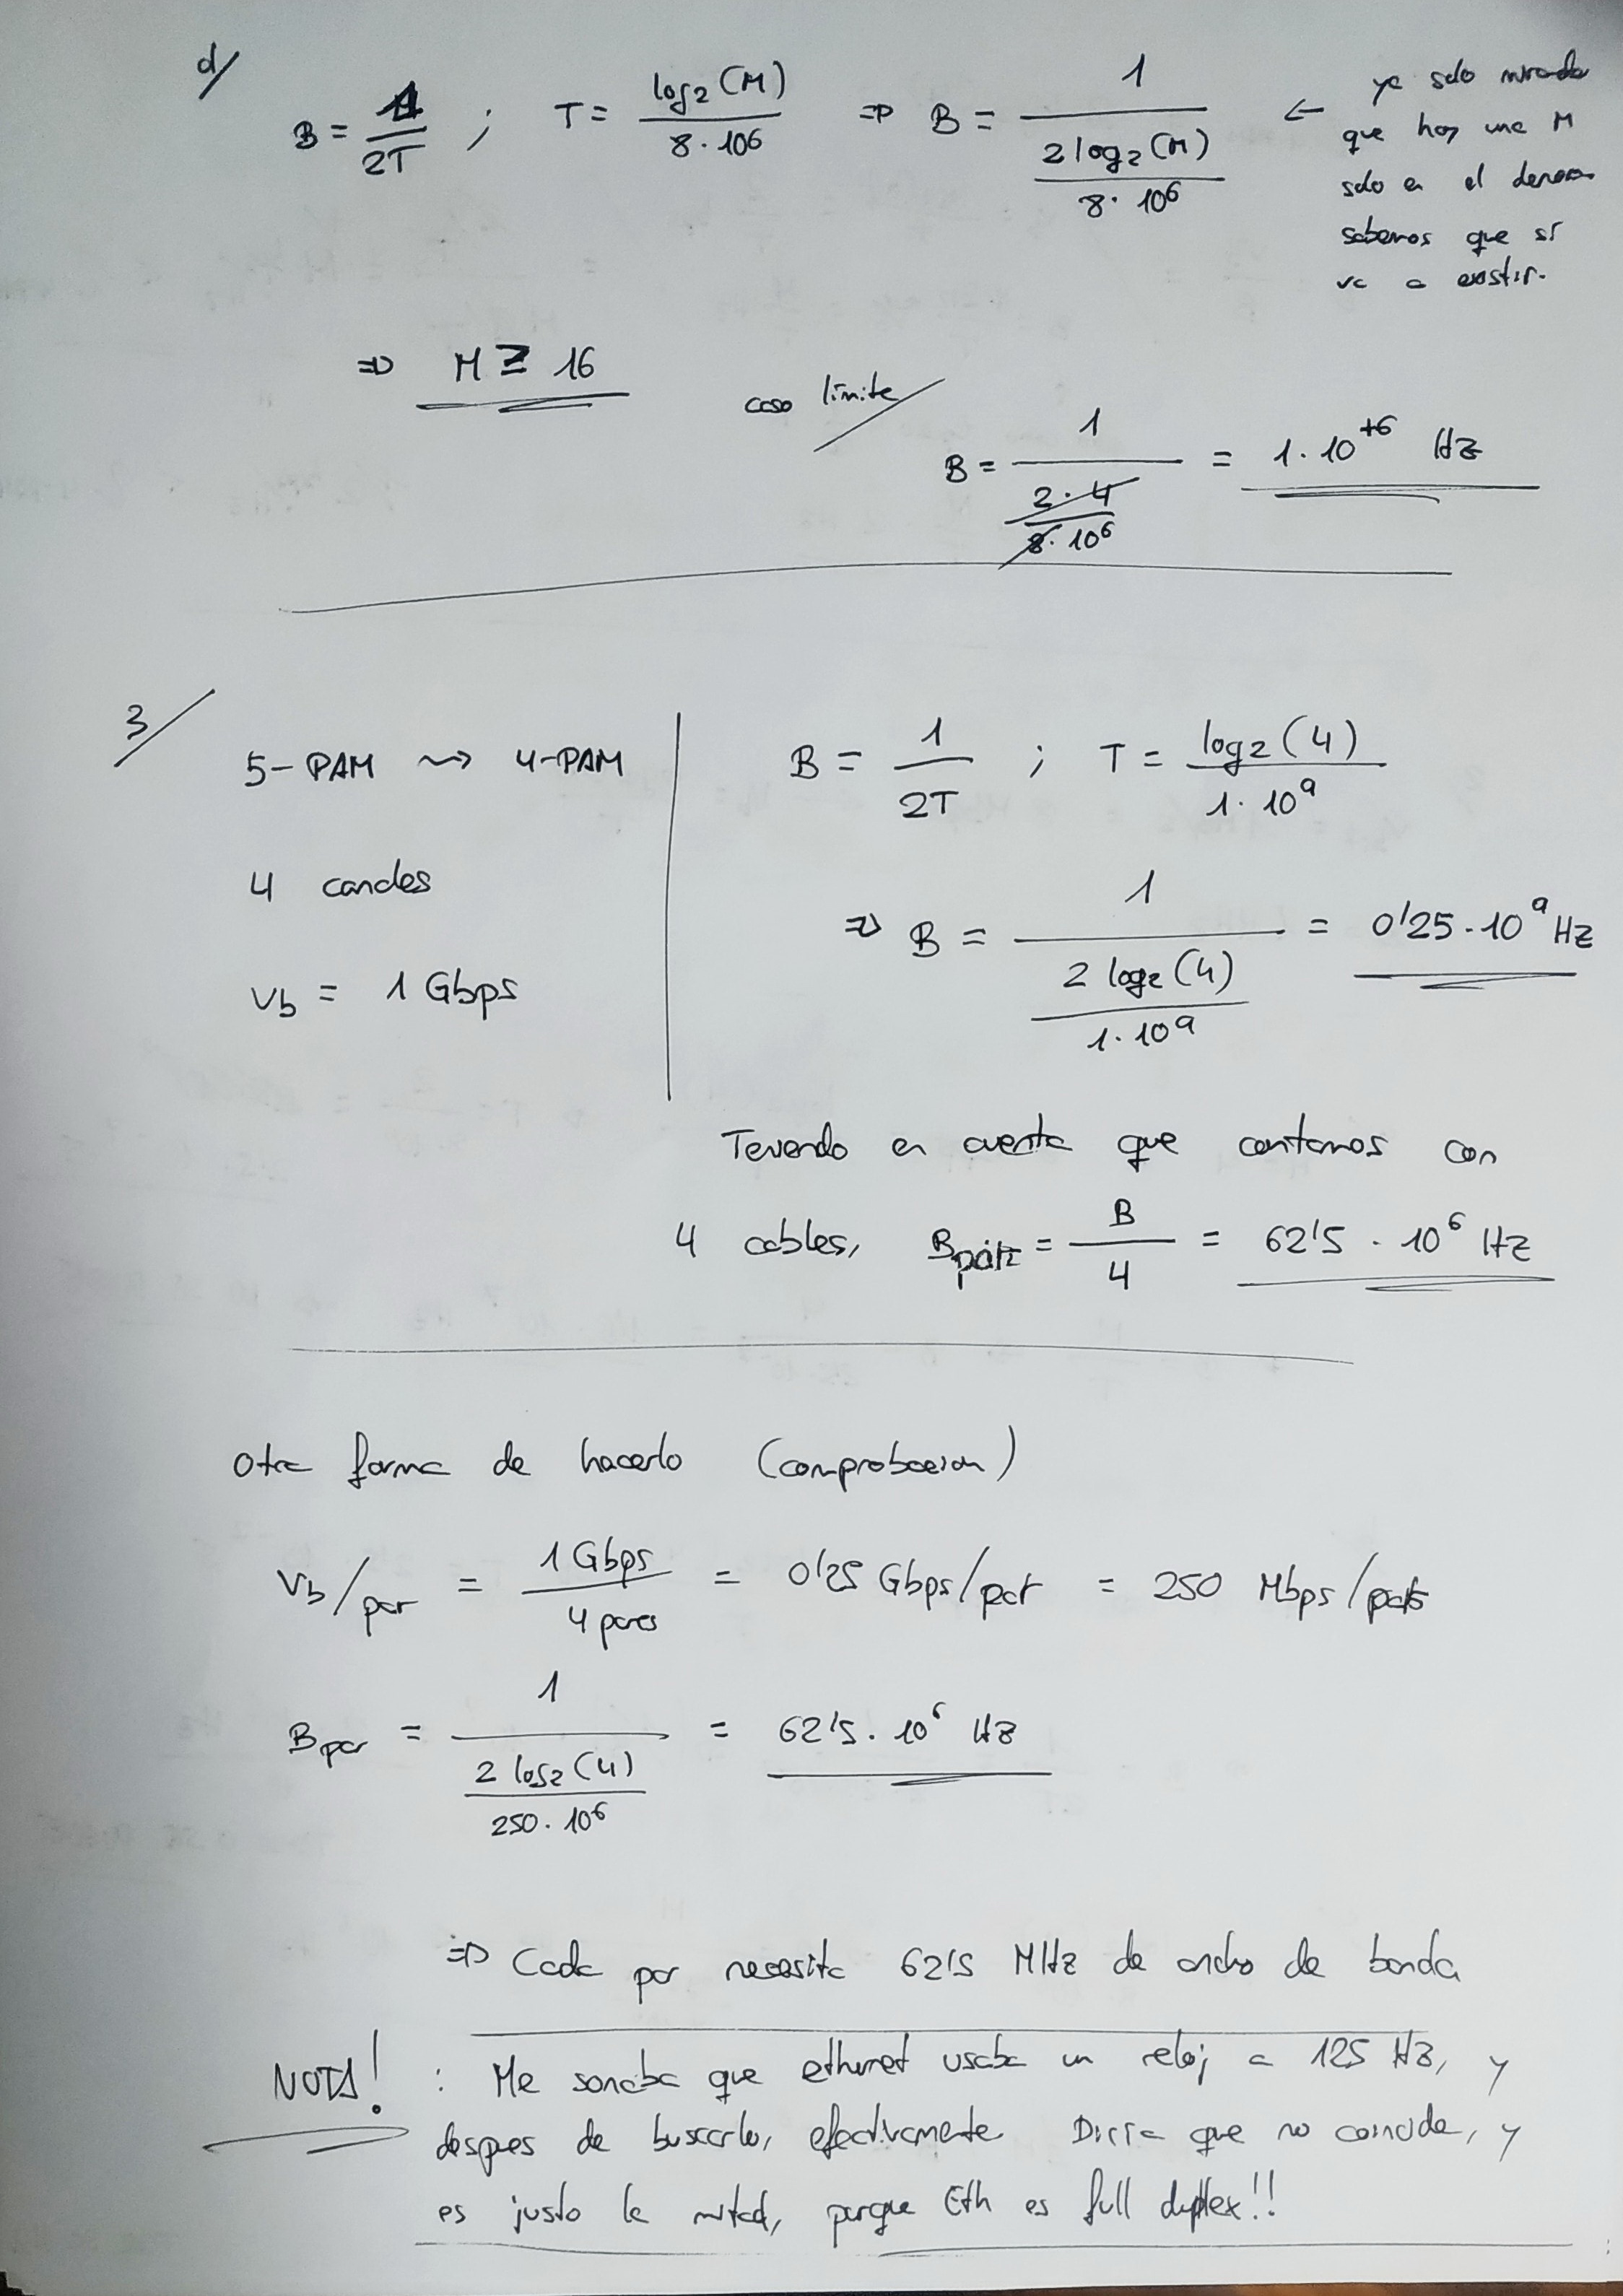 d/
B = 1/2T ; T = log₂(M)/8·10⁶ ⇒ B = 1/(2log₂(M)/8·10⁶) ← ya solo mirando
que hay una M
solo en el denom
sabemos que sí
va a existir.
⇒ M ≥ 16
caso límite/ B = 1/(2·4/8·10⁶) = 1·10⁺⁶ Hz
3/
5-PAM ⇝ 4-PAM
4 canales
Vb = 1 Gbps
B = 1/2T ; T = log₂(4)/1·10⁹
⇒ B = 1/(2 log₂(4)/1·10⁹) = 0'25·10⁹ Hz
Teniendo en cuenta que contamos con
4 cables, Bpar = B/4 = 62'5 · 10⁶ Hz
Otra forma de hacerlo (comprobacion)
Vb/par = 1 Gbps/4 pares = 0'25 Gbps/par = 250 Mbps/par
Bpar = 1/(2 log₂(4)/250·10⁶) = 62'5·10⁶ Hz
⇒ Cada par necesita 62'5 MHz de ancho de banda
NOTA! : Me sonaba que ethernet usaba un reloj a 125 Hz, y
despues de buscarlo, efectivamente. Diria que no coincide, y
es justo la mitad, porque Eth es full duplex!!